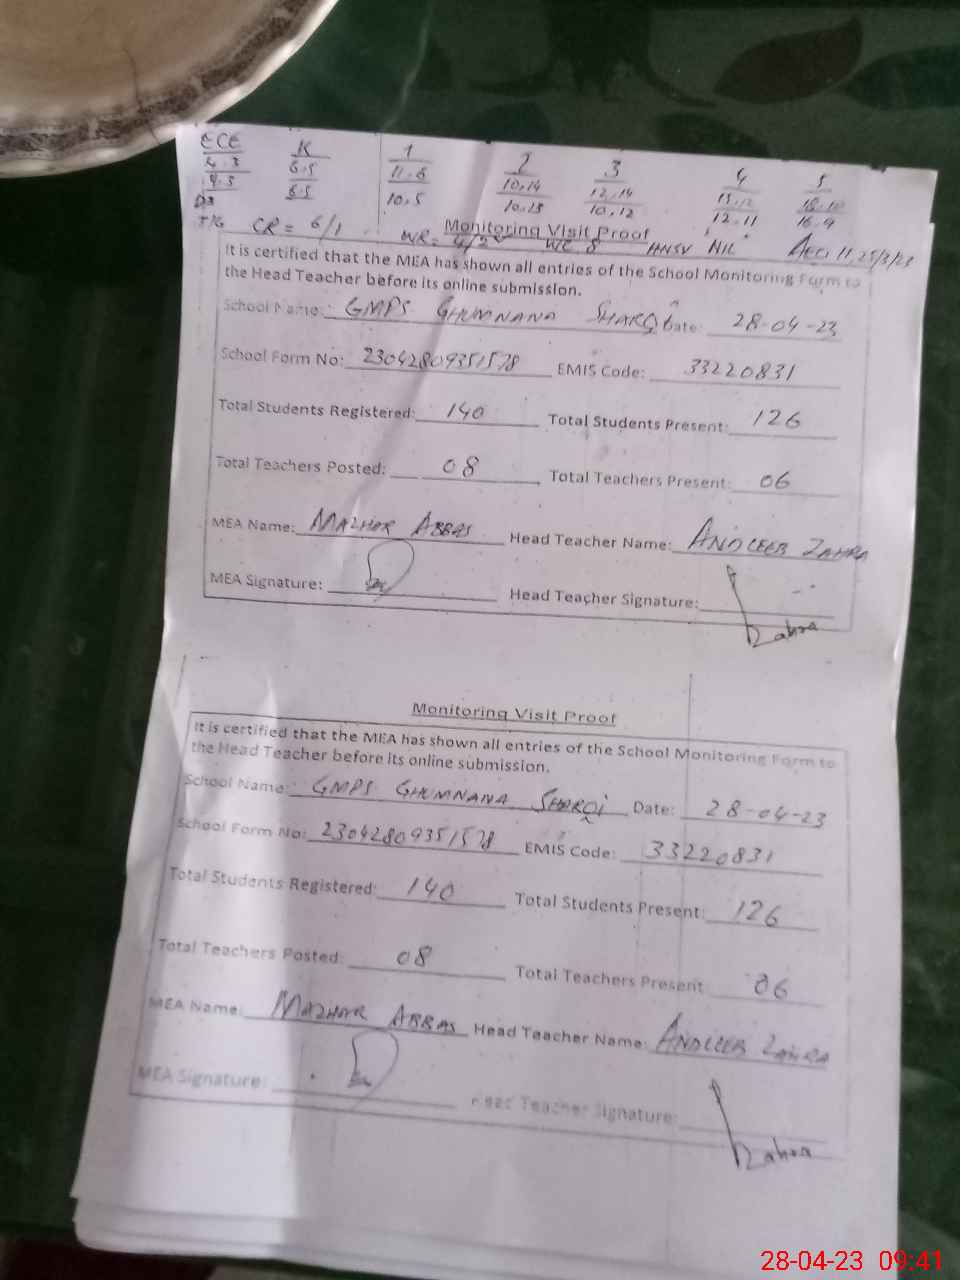 ECE K 1 2 3 4 5
4.3 6.5 11.6 10,14 12,14 13.12 18.10
4.3 6.5 10.5 10.13 10,12 12.11 16.9
CR = 6/1 Monitoring Visit Proof
WR = 4/2 WC 8 HNSV NIL AEO 11, 25/3/23
It is certified that the MEA has shown all entries of the School Monitoring Form to
the Head Teacher before its online submission.
School Name: GMPS GHUMNANA SHARQi Date: 28-04-23
School Form No: 23042809351578 EMIS Code: 33220831
Total Students Registered: 140 Total Students Present: 126
Total Teachers Posted: 08 Total Teachers Present: 06
MEA Name: MAZHAR ABBAS Head Teacher Name: ANDLEEB ZAHRA
MEA Signature: Head Teacher Signature: Zahra
Monitoring Visit Proof
It is certified that the MEA has shown all entries of the School Monitoring Form to
the Head Teacher before its online submission.
School Name: GMPS GHUMNANA SHARQi Date: 28-04-23
School Form No: 23042809351578 EMIS Code: 33220831
Total Students Registered: 140 Total Students Present: 126
Total Teachers Posted: 08 Total Teachers Present 06
MEA Name: MAZHAR ABBAS Head Teacher Name: ANDLEEB ZAHRA
MEA Signature: Head Teacher Signature: Zahra
28-04-23 09:41